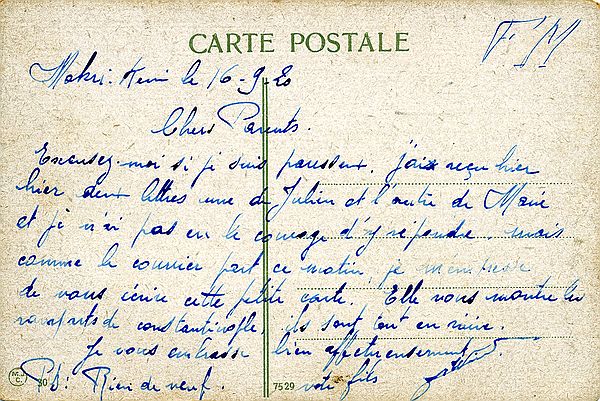 CARTE POSTALE
F M
Makri-Keui le 16-9-20
Chers Parents.
Excusez-moi si je suis paresseux. j'ai reçu hier
hier deux lettres une de Julien et l'autre de Marie
et je n'ai pas eu le courage d'y répondre. mais
comme le courrier part ce matin, je m'empresse
de vous écrire cette petite carte. Elle vous montre les
remparts de constantinople, ils sont tout en ruine.
Je vous embrasse bien affectueusement
P.S: Rien de neuf. votre fils
M.J.C. 30 7529